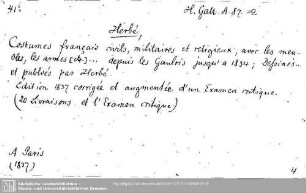 41b
H. Gall. A. 87. =2
Herbé,
Costumes français civils, militaires et religieux, avec les meu-
bles, les armes (etc.)... depuis les Gaulois jusqu'à 1834; Dessinés
et publiés par Herbé.
Edition 1837 corrigée et augmentée d'un Examen critique.
(20 Livraisons et l'Examen critique)
A Paris
(1837)